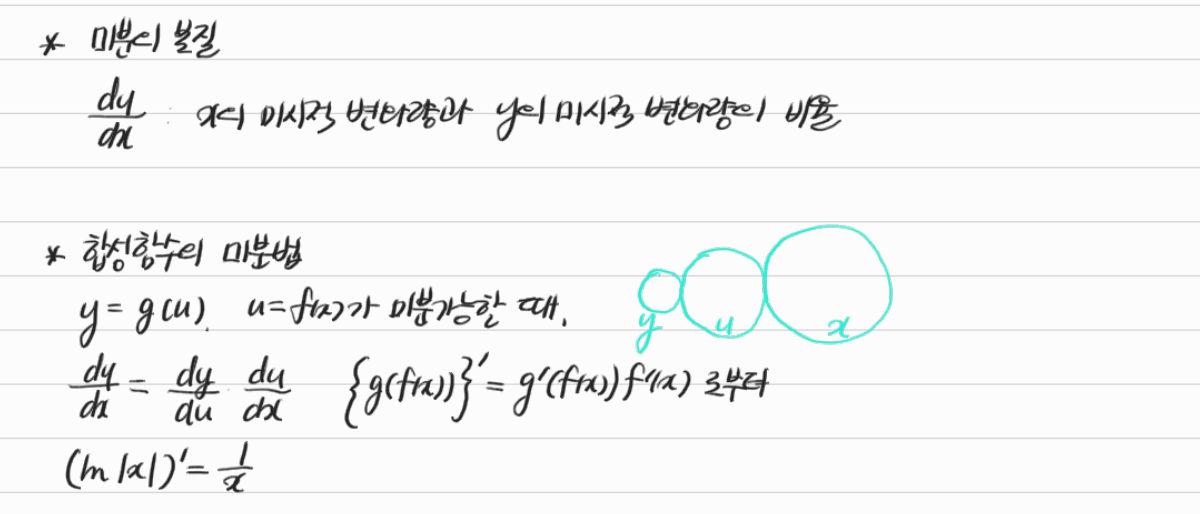 * 미분의 본질
dy/dx : x의 미시적 변화량과 y의 미시적 변화량의 비율
* 합성함수의 미분법
y = g(u). u = f(x)가 미분가능할 때,
dy/dx = dy/du · du/dx {g(f(x))}' = g'(f(x))f'(x) 로부터
(ln|x|)' = 1/x
y u x